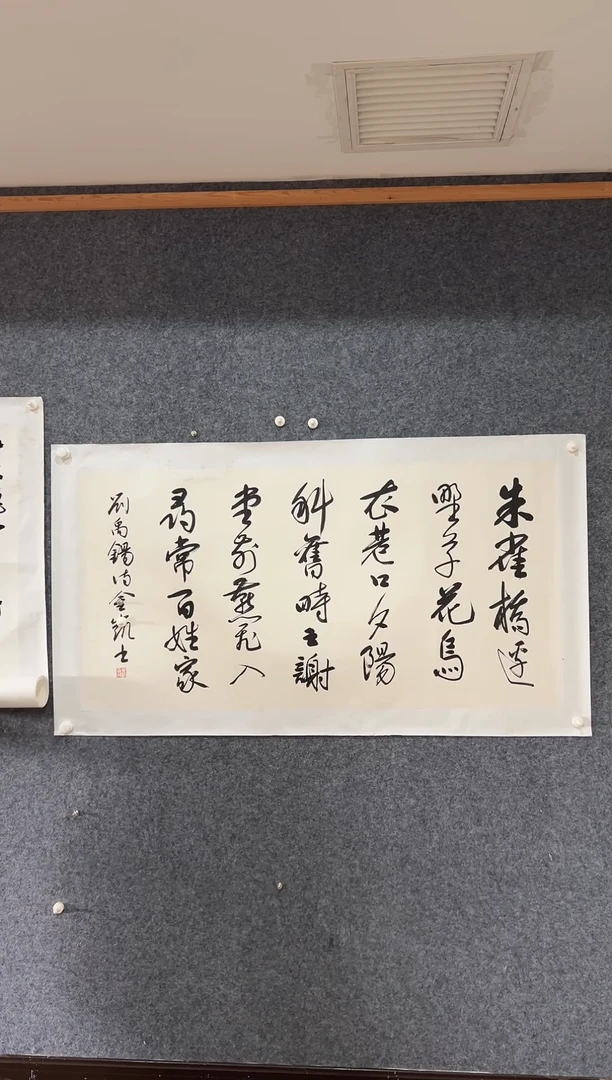 朱雀橋邊
野草花烏
衣巷口夕陽
斜舊時王謝
堂前燕飛入
尋常百姓家
劉禹錫詩金凱书